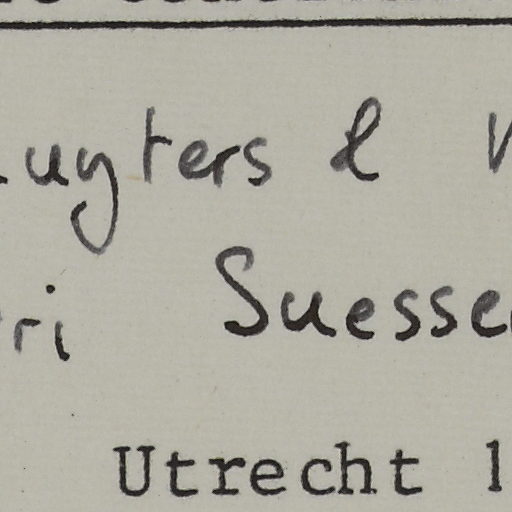 uyters &
ri Suesse
Utrecht 1